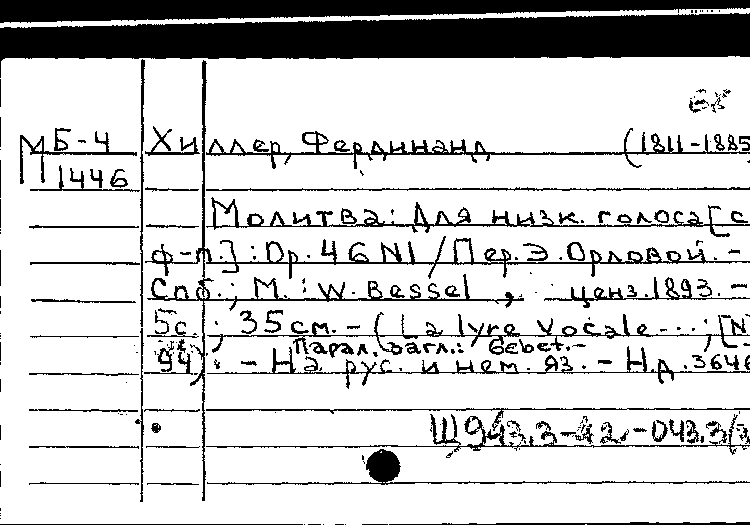 МБ-4 Хиллер, Фердинанд (1811-1885
1446
Молитва: Для низк. голоса [с
ф-п.] : Op. 46 N1 / Пер. Э. Орловой. -
Спб.; М. : W. Bessel, ценз. 1893. -
5с.; 35см. - (La lyre vocale ...; [N
Парал. загл.: Gebet. -
94). - На рус. и нем. яз. - Н.д. 3646
Щ943.3-42-043.3(3